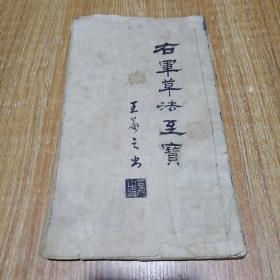 右軍草法至寶
王羲之書